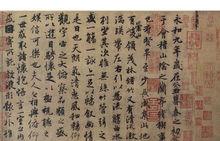 永和九年歲在癸丑暮春之初
于會稽山陰之蘭亭脩稧事
也群賢畢至少長咸集此地
有崇山峻領茂林脩竹又有清流激
湍暎帶左右引以為流觴曲水
列坐其次雖無絲竹管弦之
盛一觴一詠亦足以暢敘幽情
是日也天朗氣清惠風和暢仰
觀宇宙之大俯察品類之盛
所以遊目騁懷足以極視聽之
娛信可樂也夫人之相與俯仰
一世或取諸懷抱悟言一室之內
或因寄所託放浪形骸之外雖